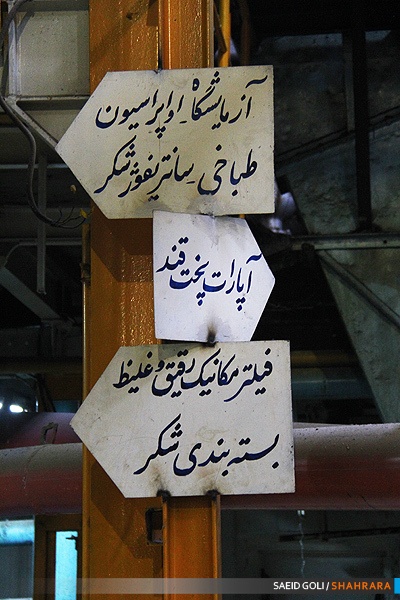 آزمایشگاه - اوپراسیون
طباخی - سانتریفوژ شکر
آپارات پخت قند
فیلتر مکانیک رقیق و غلیظ
بسته بندی شکر
SAEID GOLI / SHAHRARA